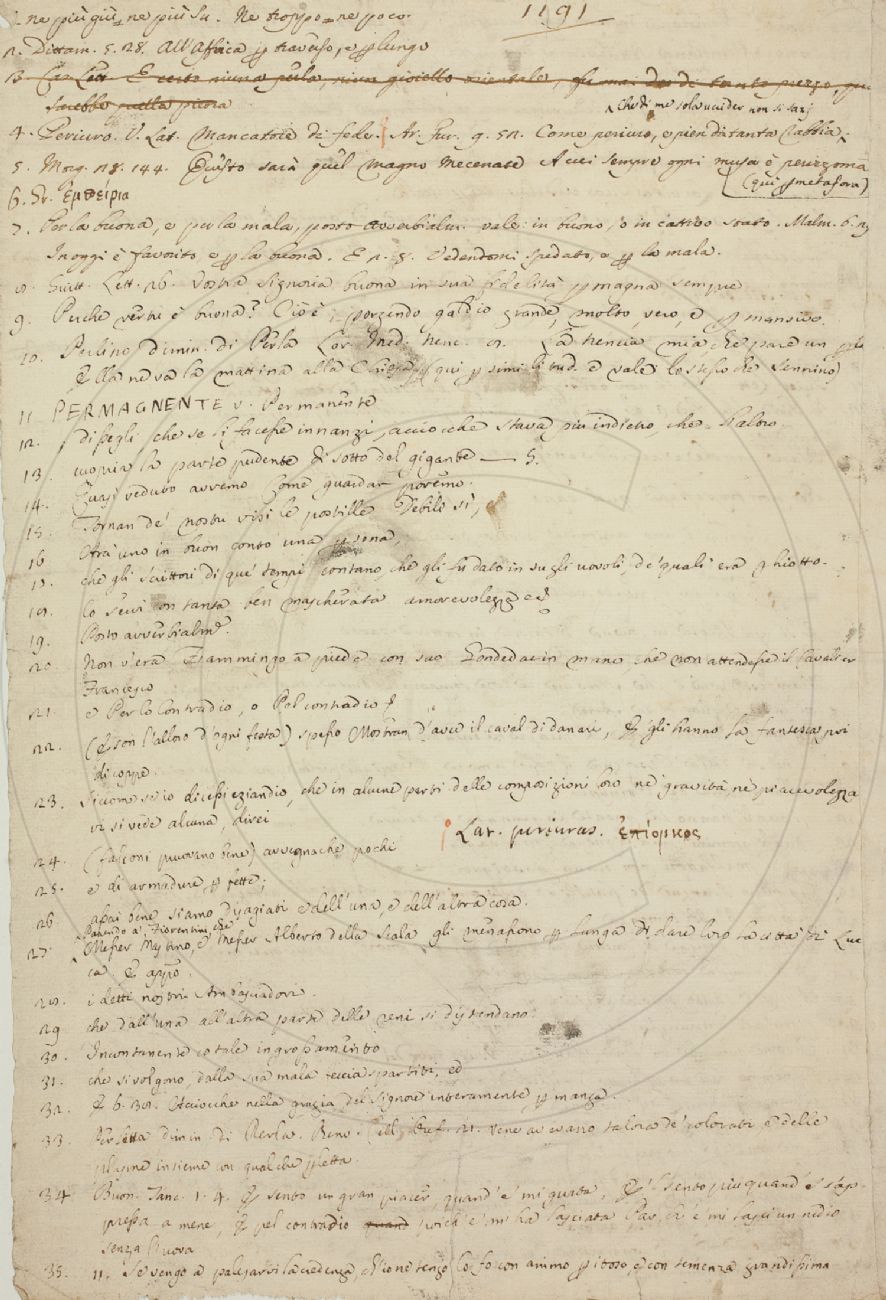 1191
1. ne più giù, ne più su. Ne troppo, ne poco.
2. Dittam. 5. 28. All'Affrica p traverso, e p lungo
3. Cas. Lett. E certo niuna perla, niun gioiello orientale, fu mai di tanto prezzo,
sarebbe nulla
che di me solo uccider non si sazj
4. Periuro. V. Lat. Mancatore di fede. Ar. Fur. Come periuro, e pien di tanta rabbia,
5. Morg. 18. 144. Questo sarà quel magno Mecenate A cui sempre ogni musa è
(qui p metafora)
6. Gr. ἐμπειρία
7. Per la buona, e per la mala, posto avverbialm. vale: in buono, o in cattivo stato. Malm. 6.
In oggi è favorito, e p la buona. E 2. 5. Vedendomi spedato, e p la mala.
8. Guitt. Lett. 26. Vostra Signoria buona in sua fedelità p magna sempre
9. Perchè vertù è buona? Cioè, porgendo gaudio grande, molto, vero, e p mansivo.
10. Perlino, dimin. di Perla. Lor. Med. Nenc. La Nencia mia che pare un
Ella ne va la mattina alla Chiesa (qui p similitud. e vale: lo stesso che
11. PERMAGNENTE v. Permanente
12. dissegli che se li facesse innanzi, acciocchè stava più indietro, che
13. copria la parte pudente di sotto del gigante — 5.
14. Quasi veduto avremo Come guardar potemo.
15. Tornan de' nostri visi le postille Debili sì,
16. Avrà uno in buon conto una p sona,
17. che gli scrittori di que' tempi contano, che gli fu dato in su gli uovoli, de' quali era ghiotto.
18. lo servì con tanta ben mascherata amorevolezza ed
19. Posto avverbialme.
20. Non v'era Fiammingo a piede con suo Godendac in mano, che non attendesse il Cavalier
Francesco
21. e Per lo contradio, o Pel contradio
22. (E son l'alloro d'ogni festa) spesso Mostran d'aver il caval di danari, E gli hanno la fantesca poi
di coppe.
23. Siccome se io dicessi eziandio, che in alcune parti delle composizioni loro nè gravità, nè piacevolezza
vi si vede alcuna, direi
Lat. periurus. ἐπίορκος
24. (fazioni pruovano bene) avvegnache pochi
25. e di armadure p fette;
26. assai bene siamo dysagiati e dell'una, e dell'altra cosa.
Parendo a' Fiorentini, che
27. Messer Mastino, e Messer Alberto della Scala gli menassono p lunga di dare loro la città di Luc
ca. E appo.
28. i detti nostri Ambasciadori.
29. che dall'una all'altra parte delle reni si distendano
30. Incontanente cotale ingrossamento
31. che si volgono, dalla sua mala feccia spartiti, ed
32. E 6. 38. Acciocchè nella grazia del Signore interamente p manga.
33. Perletta dimin. di Perla. Benv. Cell. Oref. 21. Vene avevano talora de' colorati, e delle
insieme con qualche p letta.
34. Buon. Tanc. 1. 4. E sento un gran piacer, quand' e' mi guata, E lo sento più quand' e' s'ap-
pressa a mene, E pel contradio poich' e' m' ha lasciata Par, ch' e' mi lasci un nidio
senza l'uova
35. 11. Se vengo a palesarvi la credenza, ch'io ne tengo, lo fo con animo p itoso, e con temenza grandissima